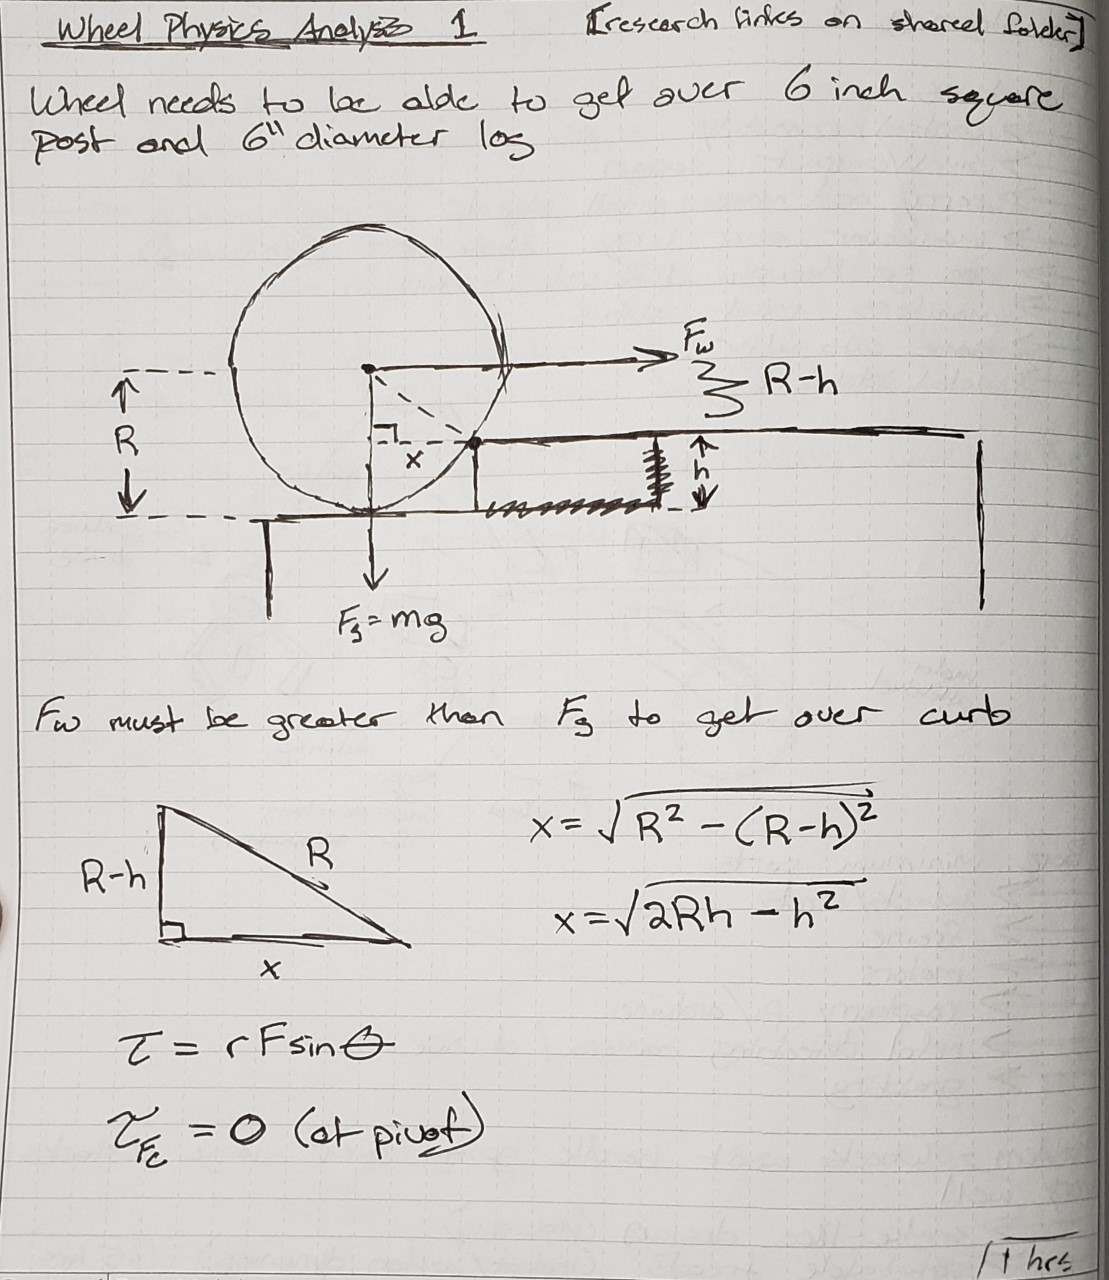 Wheel Physics Analysis 1 [research links on shared folder]
Wheel needs to be able to get over 6 inch square
post and 6" diameter log
F_w
R-h
R
x
h
F_g = mg
F_w must be greater than F_g to get over curb
R-h
R
x
x = √(R² - (R-h)²)
x = √(2Rh - h²)
τ = rFsinθ
τ_Fc = 0 (at pivot)
1 hrs